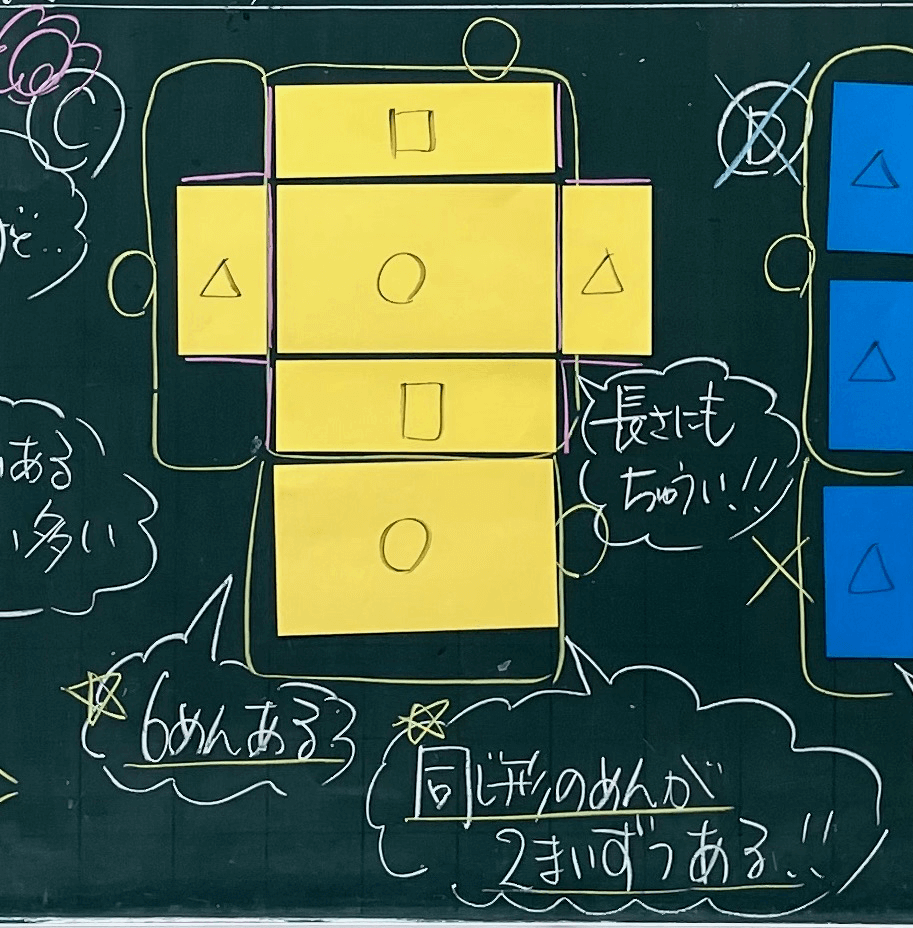 C
D
ど..
長さにも
ちゅうい!!
ある
い多い
6めんある
同じ形のめんが
2まいずつある!!